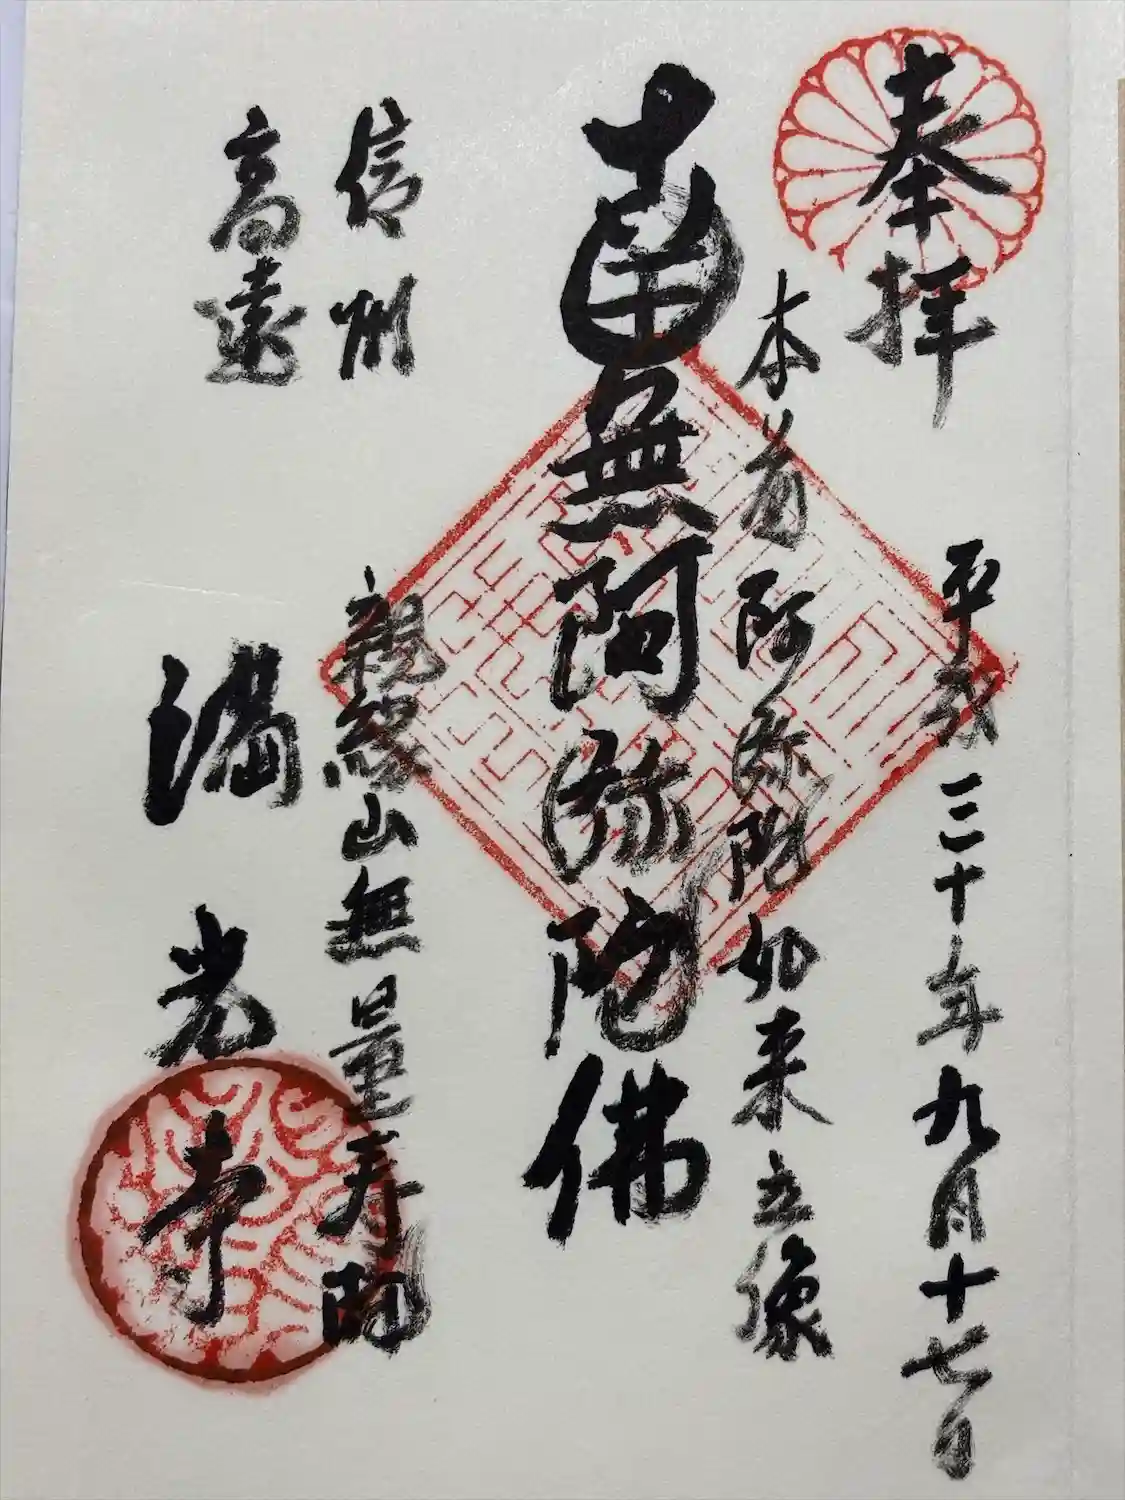 奉拝 平成三十年九月十七日
本尊阿弥陀如来立像
南無阿弥陀佛
信州 親縁山無量寿院
高遠 満光寺